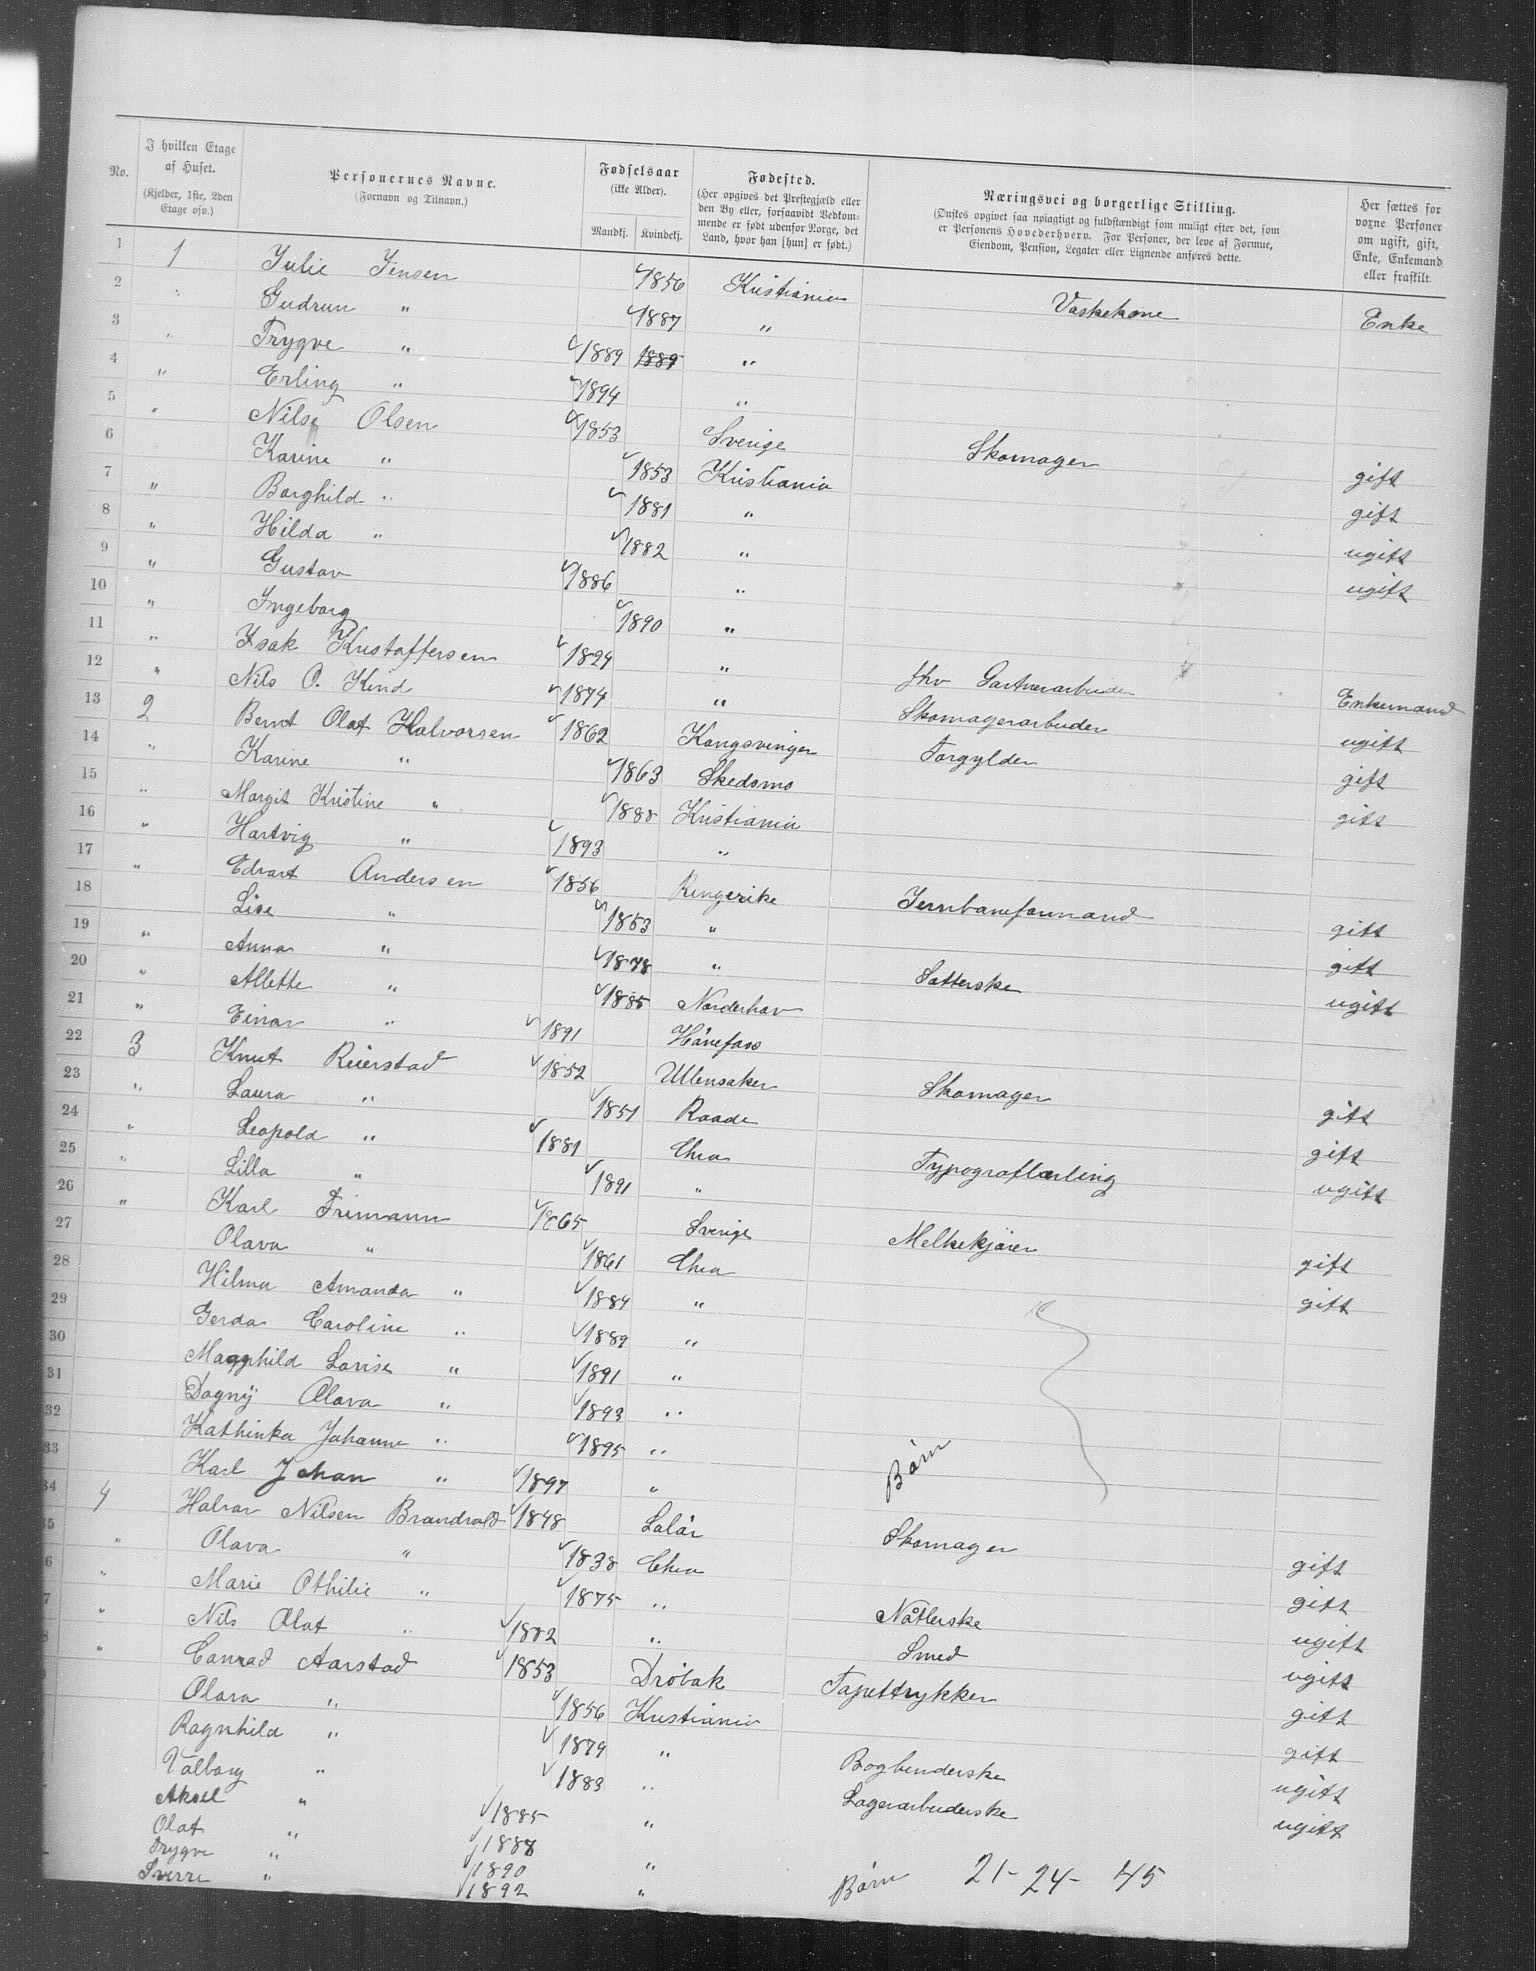 No. | I hvilken Etage af Huset. (Kjelder, 1ste, 2den Etage osv.) | Personernes Navne. (Fornavn og Tilnavn.) | Fødselsaar (ikke Alder). Mandkj. Kvindekj. | Fødested. (Her opgives det Prestegjæld eller den By eller, forsaavidt Vedkommende er født udenfor Norge, det Land, hvor han [hun] er født.) | Næringsvei og borgerlige Stilling. (Ønskes opgivet saa nøiagtigt og fuldstændigt som muligt efter det, som er Personens Hovederhverv. For Personer, der leve af Formue, Eiendom, Pension, Legater eller Lignende anføres dette. | Her sættes for voxne Personer om ugift, gift, Enke, Enkemand eller fraskilt.
1 1 Julie Jensen 1856 Kristiania Vaskekone Enke
2 " Gudrun " 1887 "
3 " Trygve " 1889 1889 "
4 " Erling " 1894 "
5 " Nils Olsen 1853 Sverige Skomager gift
6 Karine " 1853 Kristiania gift
7 " Borghild " 1881 " ugift
8 " Hilda " 1882 " ugift
9 " Gustav 1886 "
10 " Ingeborg 1890 "
11 " Isak Kristoffersen 1824 " fhv Gartnerarbeider Enkemand
12 " Nils O. Kind 1874 " Skomagerarbeider ugift
13 2 Bernt Olaf Halvorsen 1862 Kongsvinger Forgylder gift
14 " Karine " 1863 Skedsmo gift
15 " Margit Kristine " 1888 Kristiania
16 " Hartvig " 1893 "
17 " Edvart Andersen 1856 Ringerike Jernbaneformand gift
18 Lise " 1853 " gift
19 " Anna " 1878 " Satterske ugift
20 " Allette " 1885 Norderhov
21 " Einar " 1891 Hönefoss
22 3 Knut Reierstad 1852 Ullensaker Skomager gift
23 " Laura " 1851 Raade gift
24 " Leopold " 1881 Chra Typograflærling ugift
25 " Lilla " 1891 "
26 " Karl Frimann 1865 Sverige Melkekjører gift
27 Olava " 1861 Chra gift
28 Hilma Amanda " 1884 "
29 Gerda Caroline " 1889 "
30 Magnhild Lovise " 1891 "
31 Dagny Olava " 1893 "
32 Kathinka Johanne " 1895 "
33 Karl Johan " 1897 " Børn
34 4 Halvor Nilsen Brandvold 1848 Solør Skomager gift
35 " Olava " 1838 Chra gift
6 " Marie Othilie " 1875 " Nåtlerske ugift
7 " Nils Olaf " 1882 " Smed ugift
8 " Conrad Aarstad 1853 Drøbak Tapettrykker gift
Olava " 1856 Kristiania gift
Ragnhild " 1879 " Bogbinderske ugift
Valborg " 1883 " Lagerarbeiderske ugift
Aksel " 1885 "
Olaf " 1888
Trygve " 1890 "
Sverre " 1892 " Børn 21- 24- 45